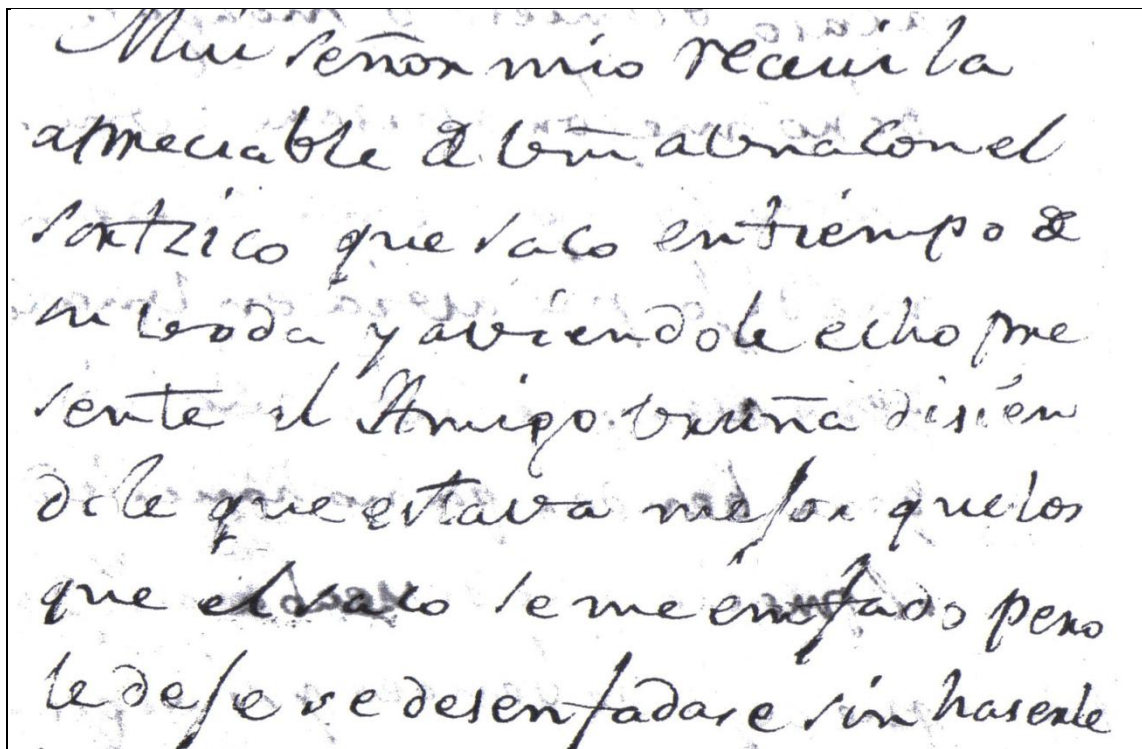 Mui señor mio receui la
apreciable de vm̃ a una con el
sortzico que saco en tiempo de
su voda y aviendole echo pre
sente al Amigo Vruña disien
dole que estava mejor que los
que el saco se me emfado pero
le deje se desenfadase sin haserle